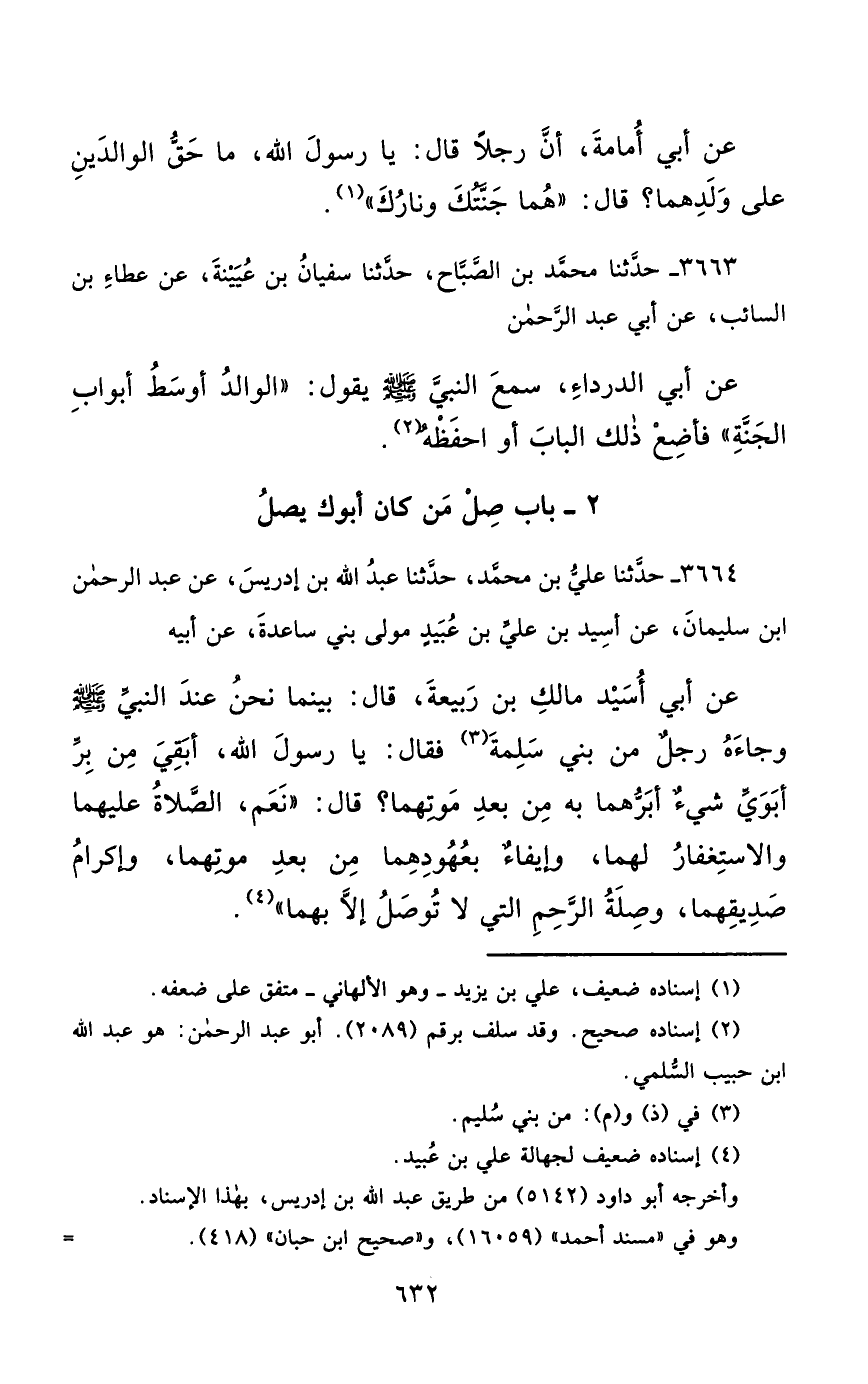 عن أبي أُمامةَ، أنَّ رجلاً قال: يا رسولَ الله، ما حَقُّ الوالدَينِ
على وَلَدِهما؟ قال: «هُما جَنَّتُكَ ونارُكَ»(١).
٣٦٦٣ـ حدَّثنا محمَّد بن الصَّبَّاح، حدَّثنا سفيانُ بن عُيَيْنةَ، عن عطاءِ بن
السائب، عن أبي عبد الرَّحمٰن
عن أبي الدرداءِ، سمعَ النبيَّ ﷺ يقول: «الوالدُ أوسَطُ أبوابِ
الجَنَّةِ» فأضِعْ ذٰلك البابَ أو احفَظْهُ(٢).
٢ ـ باب صِلْ مَن كان أبوك يصلُ
٣٦٦٤ـ حدَّثنا عليُّ بن محمَّد، حدَّثنا عبدُ الله بن إدريسَ، عن عبد الرحمٰن
ابن سليمانَ، عن أسِيد بن عليِّ بن عُبَيدٍ مولى بني ساعدةَ، عن أبيه
عن أبي أُسَيْد مالكِ بن رَبيعةَ، قال: بينما نحنُ عندَ النبيِّ ﷺ
وجاءَهُ رجلٌ من بني سَلِمةَ(٣) فقال: يا رسولَ الله، أبَقِيَ مِن بِرِّ
أبَوَيِّ شيءٌ أبَرُّهما به مِن بعدِ مَوتِهما؟ قال: «نَعَم، الصَّلاةُ عليهما
والاستِغفارُ لهما، وإيفاءٌ بعُهُودِهِما مِن بعدِ موتِهما، وإكرامُ
صَدِيقِهما، وصِلَةُ الرَّحِمِ التي لا تُوصَلُ إلاَّ بهما»(٤).
(١) إسناده ضعيف، علي بن يزيد ـ وهو الألهاني ـ متفق على ضعفه.
(٢) إسناده صحيح. وقد سلف برقم (٢٠٨٩). أبو عبد الرحمٰن: هو عبد الله
ابن حبيب السُّلمي.
(٣) في (ذ) و(م): من بني سُليم.
(٤) إسناده ضعيف لجهالة علي بن عُبيد.
وأخرجه أبو داود (٥١٤٢) من طريق عبد الله بن إدريس، بهٰذا الإسناد.
وهو في «مسند أحمد» (١٦٠٥٩)، و«صحيح ابن حبان» (٤١٨). =
٦٣٢